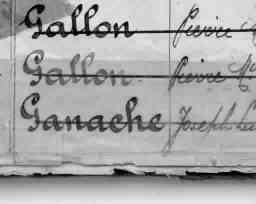 Gallon Pierre
Gallon Pierre
Ganache Joseph